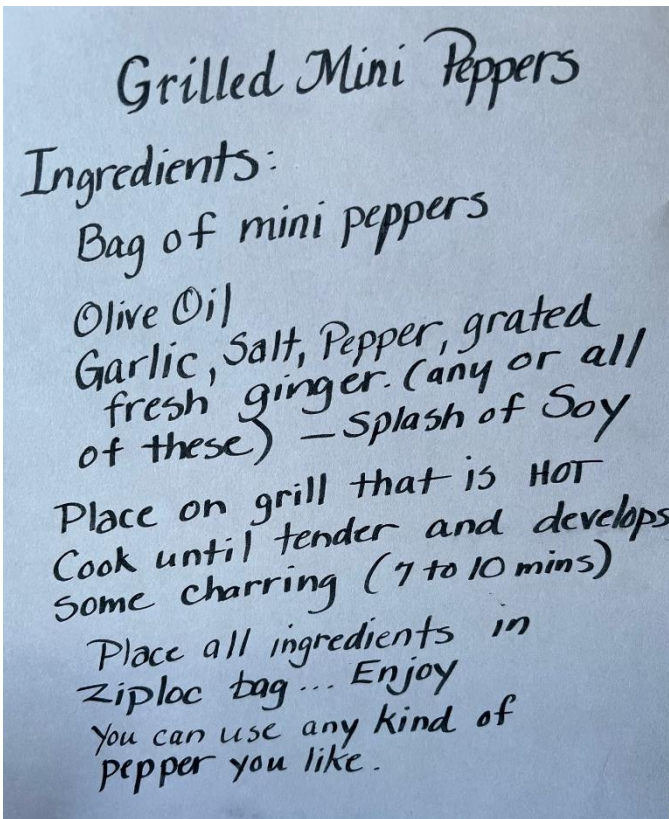 Grilled Mini Peppers
Ingredients:
Bag of mini peppers
Olive Oil
Garlic, Salt, Pepper, grated
fresh ginger. (any or all
of these) – Splash of Soy
Place on grill that is HOT
Cook until tender and develops
some charring (7 to 10 mins)
Place all ingredients in
Ziploc bag... Enjoy
You can use any kind of
pepper you like.